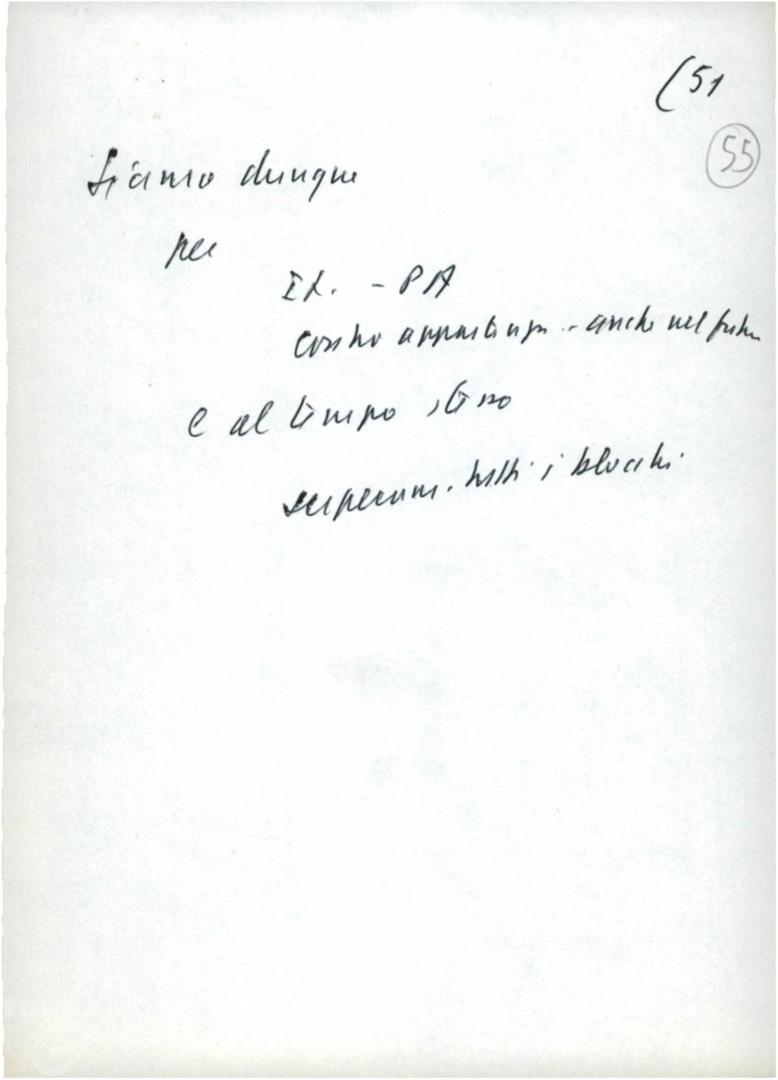 (51
55
Siamo dunque
per
It. - PA
contro appartenen. - anche nel futuro
e al tempo stesso
superam. tutti i blocchi.